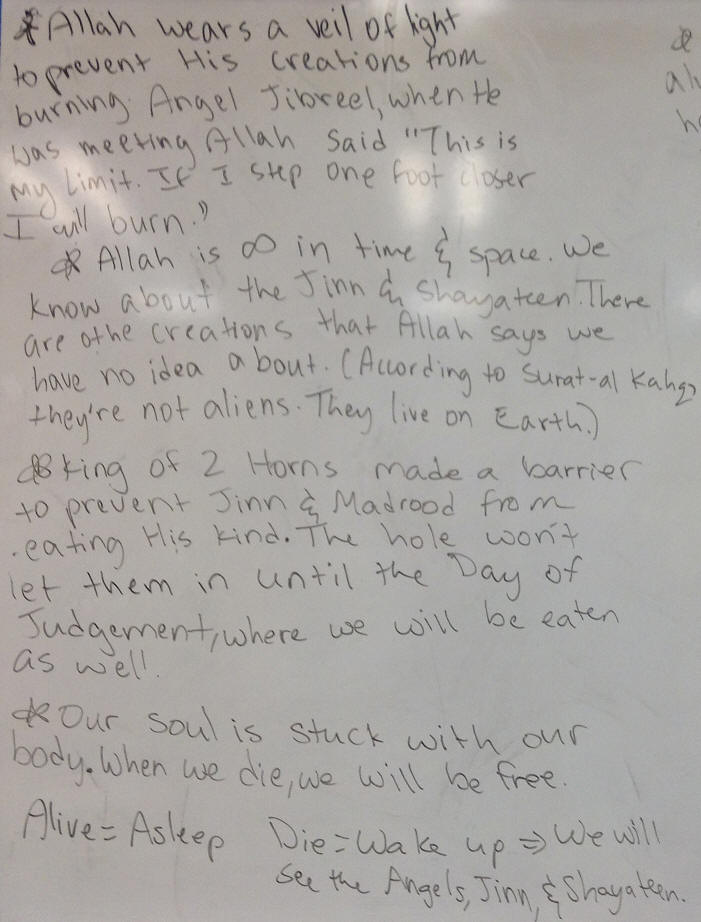 * Allah wears a veil of light
to prevent His creations from
burning. Angel Jibreel, when He
was meeting Allah said "This is
my limit. If I step one foot closer
I will burn."
* Allah is ∞ in time & space. We
know about the Jinn & Shayateen. There
are othe creations that Allah says we
have no idea about. (According to Surat-al Kahf,
they're not aliens. They live on Earth.)
* King of 2 Horns made a barrier
to prevent Jinn & Madrood from
eating His kind. The hole won't
let them in until the Day of
Judgement, where we will be eaten
as well.
* Our soul is stuck with our
body. When we die, we will be free.
Alive = Asleep Die = Wake up ⇒ We will
see the Angels, Jinn, & Shayateen.